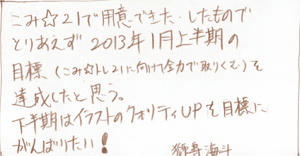 こみ☆21で用意できた・したもので
とりあえず2013年1月上半期の
目標(こみ☆トレ21に向けて全力で取りくむ)を
達成したと思う。
下半期はイラストのクォリティUPを目標に
がんばりたい!
海斗